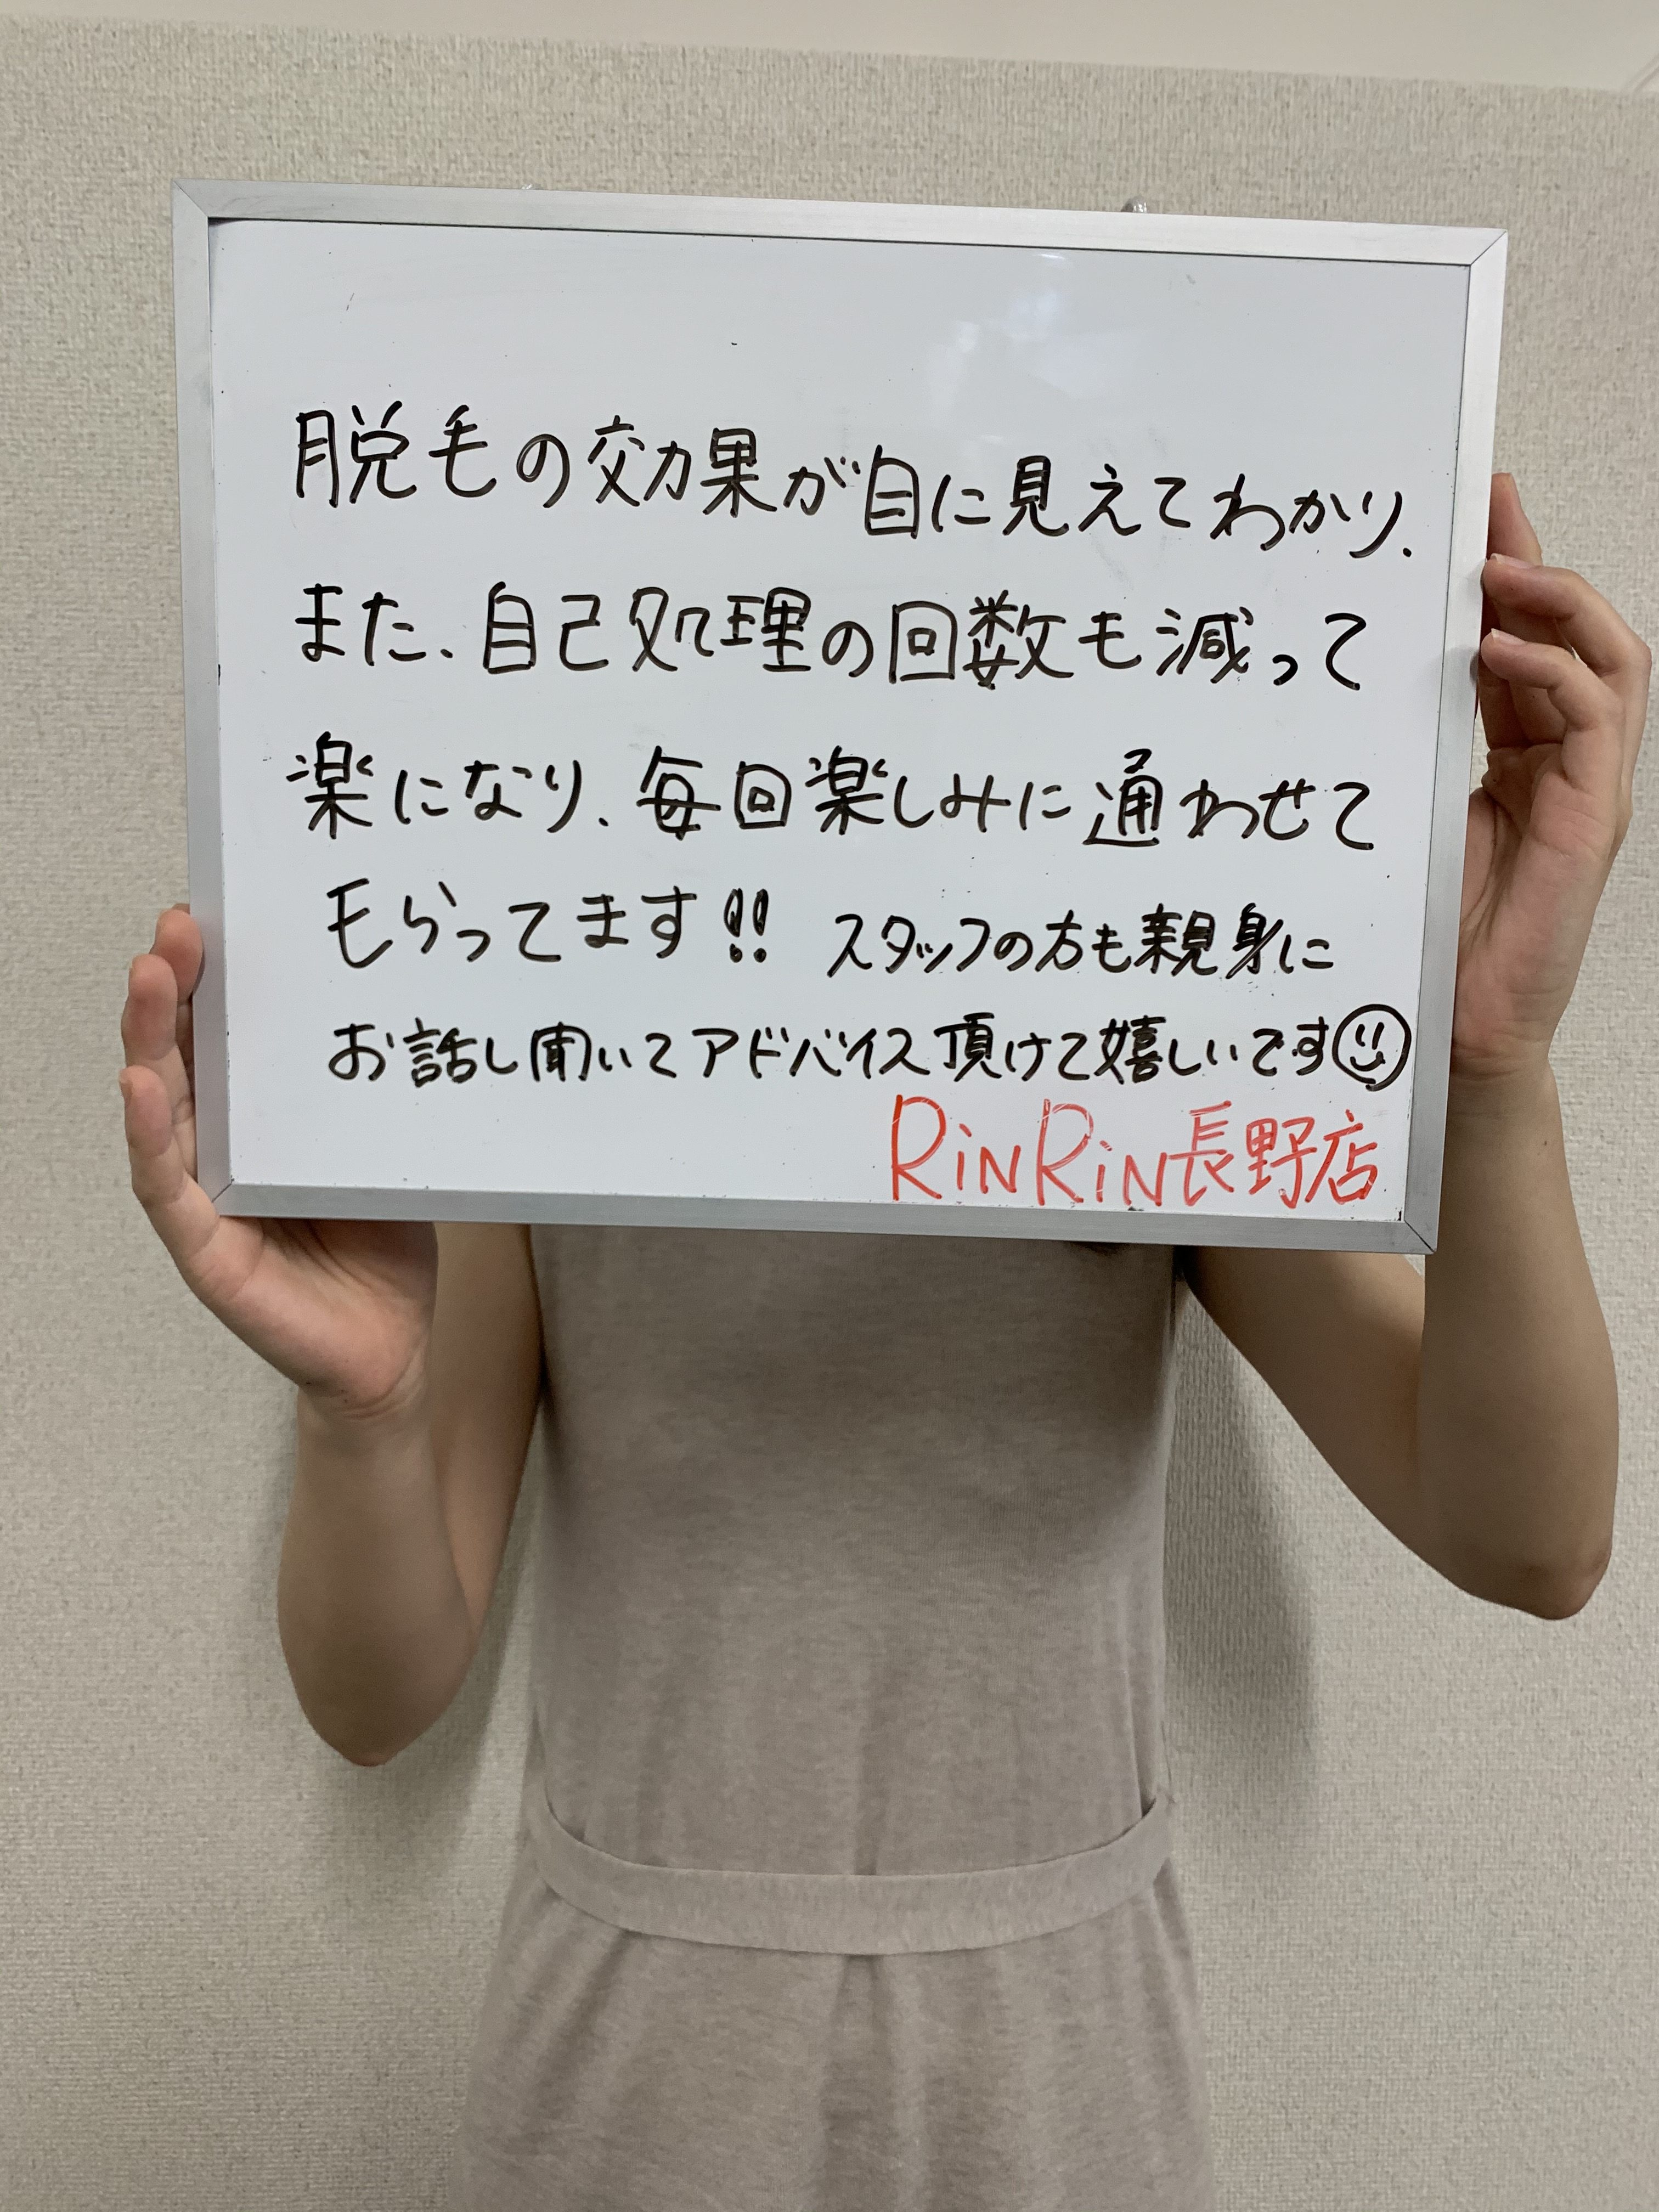 脱毛の効果が目に見えてわかり、
また、自己処理の回数も減って
楽になり、毎回楽しみに通わせて
もらってます!! スタッフの方も親身に
お話し聞いてアドバイス頂けて嬉しいです
RiNRiN長野店